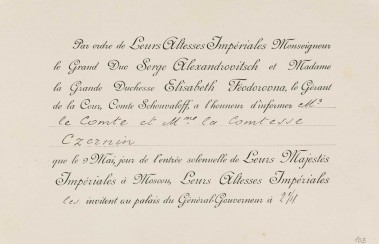 Par ordre de Leurs Altesses Impériales Monseigneur
le Grand Duc Serge Alexandrovitsch et Madame
la Grande Duchesse Elisabeth Feodorovna, le Gérant
de la Cour, Comte Schouvaloff, a l'honneur d'informer Mr
le Comte et Mme la Comtesse
Czernin
que le 9 Mai, jour de l'entrée solennelle de Leurs Majestés
Impériales à Moscou, Leurs Altesses Impériales
les invitent au palais du Général-Gouverneur à